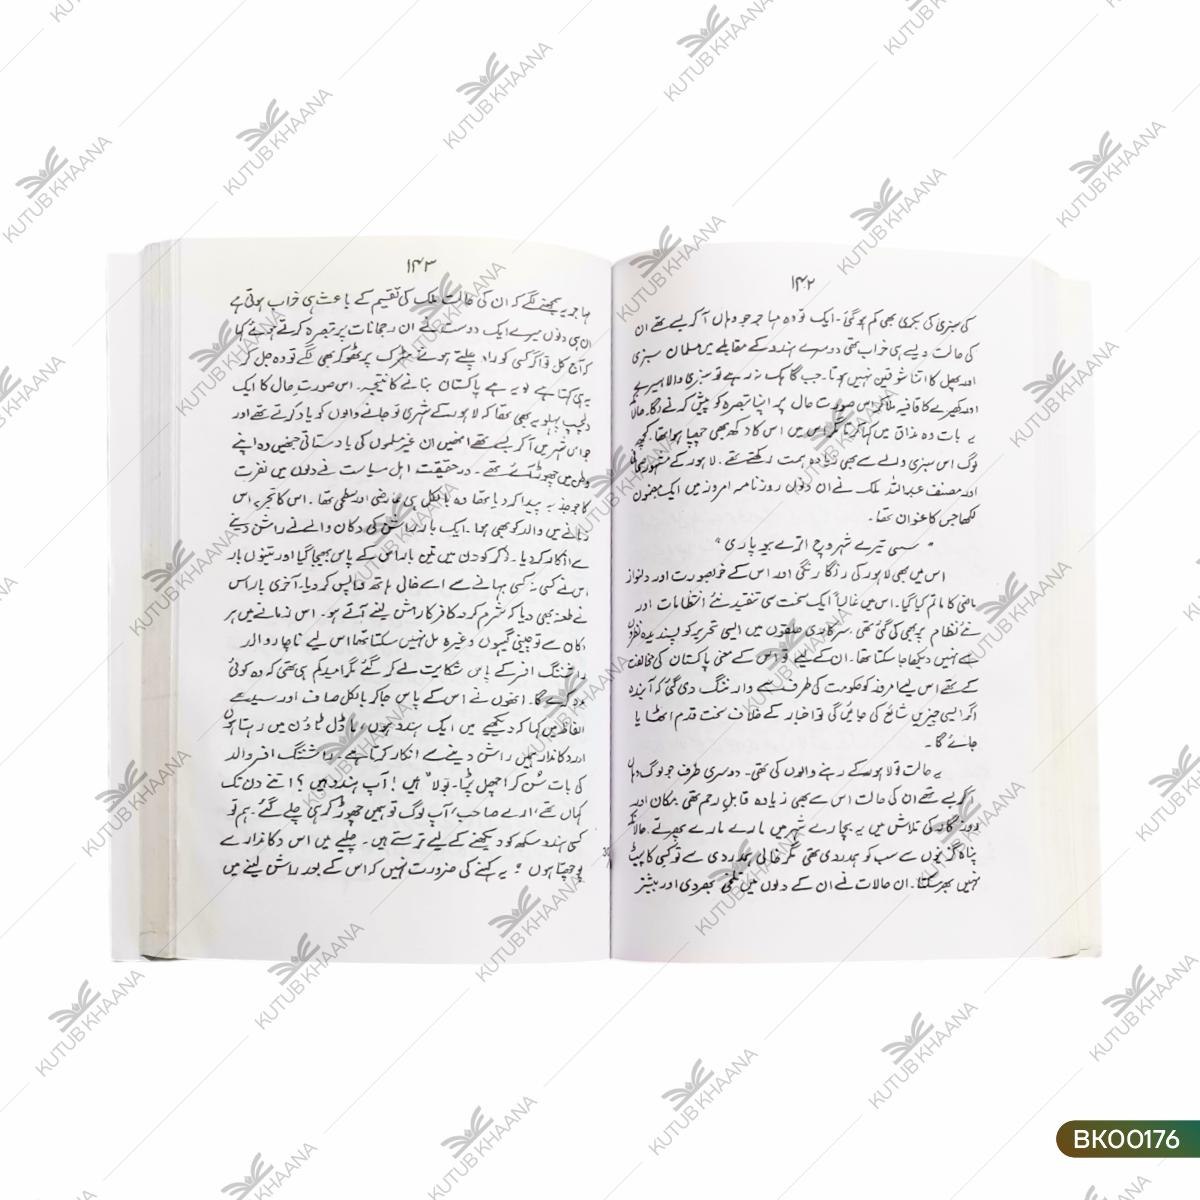 ۱۴۲
کی سبزی کی بکری بھی کم ہوگئی۔ ایک تو وہ مہاجر جو وہاں آکر بسے تھے ان
کی حالت ویسے ہی خراب تھی دوسرے ہندو کے مقابلے میں مسلمان سبزی
اور پھل کا اتنا شوقین نہیں ہوتا۔ جب گاہک نہ رہے تو سبزی والا ہیرے
اور کھیرے کا قافیہ ملا کر اس صورت حال پر اپنا تبصرہ کو پیش کرنے لگا۔ حالانکہ
یہ بات وہ مذاق میں کہا کرتا مگر اس میں اس کا دکھ بھی چھپا ہوا تھا۔ کچھ
لوگ اس سبزی والے سے بھی زیادہ ہمت رکھتے تھے۔ لاہور کے مشہور صحافی
اور مصنف عبداللہ ملک نے ان دنوں روزنامہ امروز میں ایک مضمون
لکھا جس کا عنوان تھا۔
" سسی تیرے شہر وچ اترے بیوپاری "
اس میں بھی لاہور کی رنگا رنگی اور اس کے خوبصورت اور دلنواز
ماضی کا ماتم کیا گیا۔ اس میں غالباً ایک سخت سی تنقید نئے انتظامات اور
نئے نظام پر بھی کی گئی تھی۔ سرکاری حلقوں میں ایسی تحریر کو پسندیدہ نظروں
سے نہیں دیکھا جا سکتا تھا۔ ان کے لیے تو اس کے معنی پاکستان کی مخالفت
کے تھے اس لیے امروز کو حکومت کی طرف سے وارننگ دی گئی کہ آیندہ
اگر ایسی چیزیں شائع کی جائیں گی تو اخبار کے خلاف سخت قدم اٹھایا
جائے گا۔
یہ حالت تو لاہور کے رہنے والوں کی تھی۔ دوسری طرف جو لوگ وہاں
آکر بسے تھے ان کی حالت اس سے بھی زیادہ قابل رحم تھی مکان اور
روزگار کی تلاش میں یہ بچارے شہر میں مارے مارے پھرتے۔ حالانکہ
پناہ گزینوں سے سب کو ہمدردی تھی مگر خالی ہمدردی سے تو کسی کا پیٹ
نہیں بھر سکتا۔ ان حالات نے ان کے دلوں میں تلخی بھر دی اور بیشتر
۱۴۳
مہاجر یہ سمجھنے لگے کہ ان کی حالت ملک کی تقسیم کے باعث ہی خراب ہوئی ہے
ان ہی دنوں میرے ایک دوست نے ان رجحانات پر تبصرہ کرتے ہوئے کہا
کہ آج کل تو اگر کسی کو راہ چلتے ہوئے سڑک پر ٹھوکر بھی لگے تو وہ جل کر
یہی کہتا ہے تو یہ ہے پاکستان بنانے کا نتیجہ۔ اس صورت حال کا ایک
دلچسپ پہلو یہ بھی تھا کہ لاہور کے شہری تو جانے والوں کو یاد کرتے تھے اور
جو اس شہر میں آکر بسے تھے انھیں ان غیر مسلموں کی یاد ستاتی جنھیں وہ اپنے
وطن میں چھوڑ آئے تھے۔ درحقیقت اہل سیاست نے دلوں میں نفرت
کا جو جذبہ پیدا کر دیا تھا وہ بالکل ہی عارضی اور سطحی تھا۔ اس کا تجربہ اس
زمانے میں والد کو بھی ہوا۔ ایک بار راشن کی دکان والے نے راشن دینے
سے انکار کر دیا۔ نوکر کو دن میں تین بار اس کے پاس بھیجا گیا اور تینوں بار
اس نے کسی نہ کسی بہانے سے اسے خالی ہاتھ واپس کر دیا۔ آخری بار اس
نے طعنہ بھی دیا کہ شرم کرو کافر کا راشن لینے آتے ہو۔ اس زمانے میں ہر
دکان سے تو چینی گیہوں وغیرہ مل نہیں سکتا تھا اس لیے ناچار والد
راشننگ افسر کے پاس شکایت لے کر گئے مگر امید کم ہی تھی کہ وہ کوئی
مدد کرے گا۔ انھوں نے اس کے پاس جاکر بالکل صاف اور سیدھے
الفاظ میں کہا کہ دیکھیے میں ایک ہندو ہوں، ماڈل ٹاؤن میں رہتا ہوں
اور دکاندار ہمیں راشن دینے سے انکار کرتا ہے۔ راشننگ افسر والد
کی بات سُن کر اچھل پڑا۔ بولا "ہیں! آپ ہندو ہیں؟ اتنے دن تک
کہاں تھے، ارے صاحب، آپ لوگ تو ہمیں چھوڑ کر ہی چلے گئے۔ ہم تو
کسی ہندو سکھ کو دیکھنے کے لیے ترستے ہیں۔ چلیے میں اس دکاندار سے
پوچھتا ہوں" یہ کہنے کی ضرورت نہیں کہ اس کے بعد راشن لینے میں
KUTUB KHAANA
BK00176